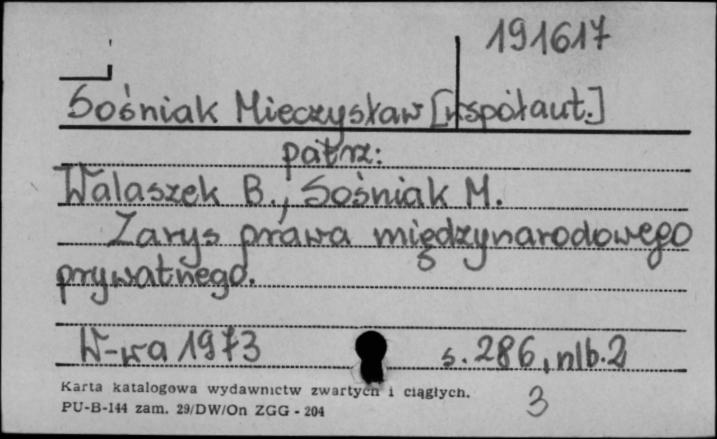 191617
Sośniak Mieczysław [współaut.]
patrz:
Walaszek B., Sośniak M.
Zarys prawa międzynarodowego
prywatnego.
W-wa 1973 s. 286, nlb. 2
Karta katalogowa wydawnictw zwartych i ciągłych.
PU-B-144 zam. 29/DW/On ZGG - 204
3